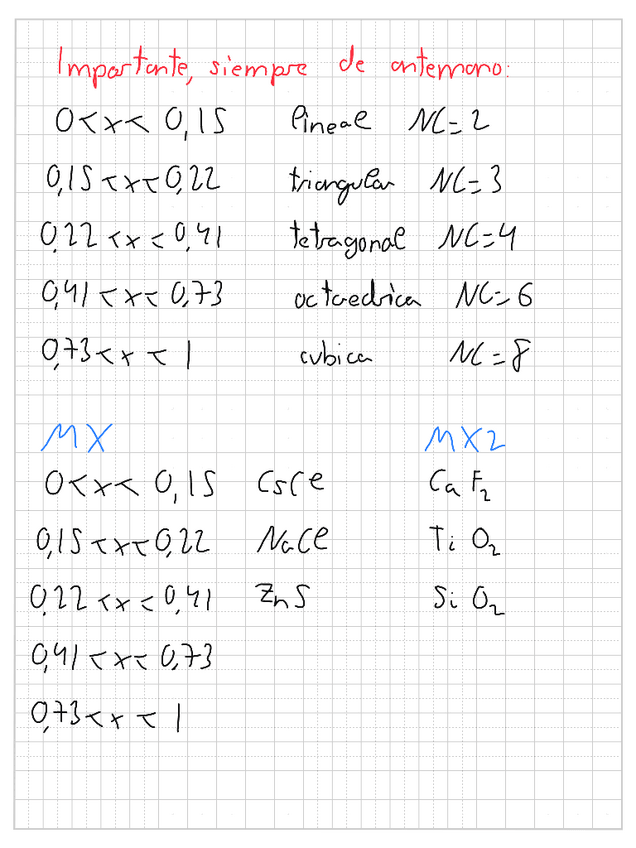 Importante, siempre de antemano:
0<x<0,15 lineal NC=2
0,15<x<0,22 triangular NC=3
0,22<x<0,41 tetragonal NC=4
0,41<x<0,73 octaedrica NC=6
0,73<x<1 cubica NC=8
MX MX2
0<x<0,15 CsCl CaF₂
0,15<x<0,22 NaCl TiO₂
0,22<x<0,41 ZnS SiO₂
0,41<x<0,73
0,73<x<1